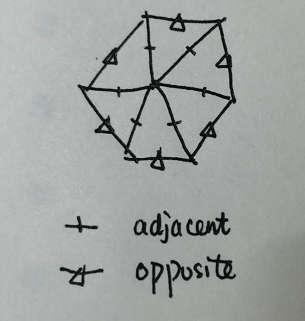 adjacent
opposite